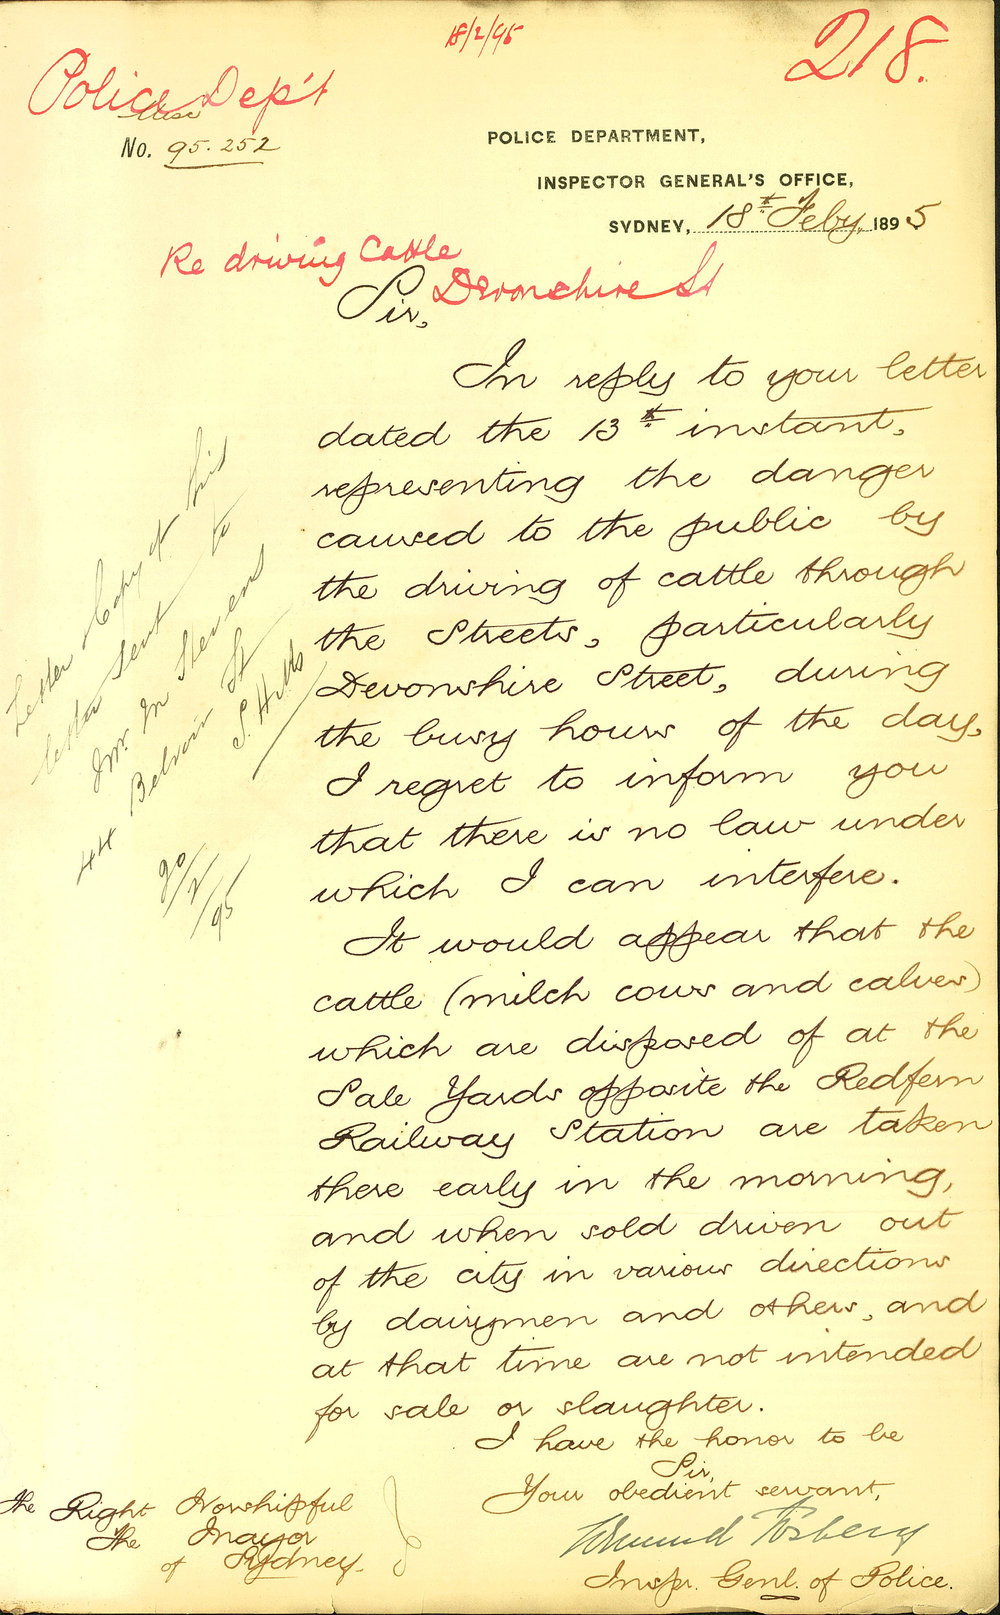 18/2/95
218.
Police Dep't
Misc
No. 95.252
POLICE DEPARTMENT,
INSPECTOR GENERAL'S OFFICE,
SYDNEY, 18th Feby. 1895
Re driving Cattle
Devonshire St
Sir,
In reply to your letter
dated the 13th instant,
representing the danger
caused to the public by
the driving of cattle through
the Streets, particularly
Devonshire Street, during
the busy hours of the day,
I regret to inform you
that there is no law under
which I can interfere.
It would appear that the
cattle (milch cows and calves)
which are disposed of at the
Sale Yards opposite the Redfern
Railway Station are taken
there early in the morning,
and when sold driven out
of the city in various directions
by dairymen and others, and
at that time are not intended
for sale or slaughter.
I have the honor to be
Sir,
Your obedient servant,
Edmund Fosbery
Inspr. Genl. of Police.
The Right Worshipful
The Mayor
of Sydney.
Letter Copy of this
letter sent to
Mr. M Stevens
44 Belvoir St
S. Hills
20/2/95